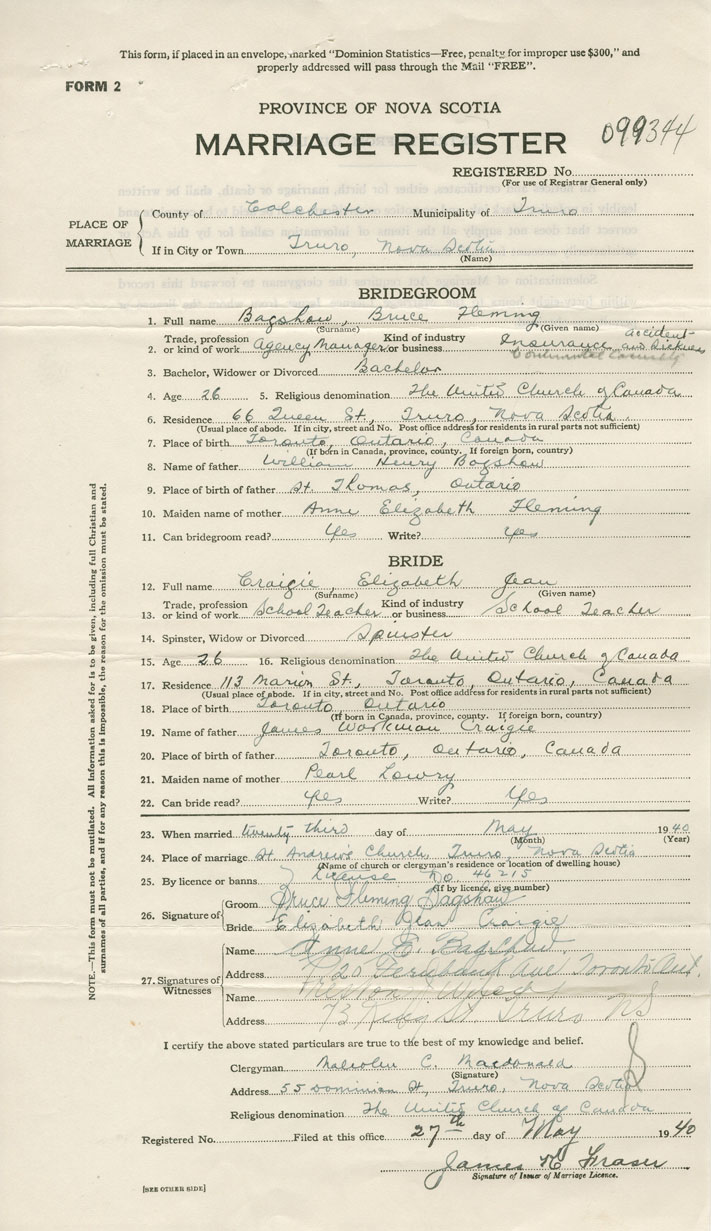 This form, if placed in an envelope, marked "Dominion Statistics—Free, penalty for improper use $300," and
properly addressed will pass through the Mail "FREE".
FORM 2
PROVINCE OF NOVA SCOTIA
MARRIAGE REGISTER 099344
REGISTERED No.
(For use of Registrar General only)
PLACE OF MARRIAGE
County of Colchester Municipality of Truro
If in City or Town Truro, Nova Scotia
(Name)
BRIDEGROOM
1. Full name Bagshaw, Bruce Fleming
(Surname) (Given name)
2. Trade, profession or kind of work Agency Manager Kind of industry or business Insurance accident and Sickness
Continental Casualty
3. Bachelor, Widower or Divorced Bachelor
4. Age 26 5. Religious denomination The United Church of Canada
6. Residence 66 Queen St., Truro, Nova Scotia
(Usual place of abode. If in city, street and No. Post office address for residents in rural parts not sufficient)
7. Place of birth Toronto, Ontario, Canada
(If born in Canada, province, county. If foreign born, country)
8. Name of father William Henry Bagshaw
9. Place of birth of father St. Thomas, Ontario
10. Maiden name of mother Anne Elizabeth Fleming
11. Can bridegroom read? Yes Write? Yes
BRIDE
12. Full name Craigie, Elizabeth Jean
(Surname) (Given name)
13. Trade, profession or kind of work School Teacher Kind of industry or business School Teacher
14. Spinster, Widow or Divorced Spinster
15. Age 26 16. Religious denomination The United Church of Canada
17. Residence 113 Marion St., Toronto, Ontario, Canada
(Usual place of abode. If in city, street and No. Post office address for residents in rural parts not sufficient)
18. Place of birth Toronto, Ontario
(If born in Canada, province, county. If foreign born, country)
19. Name of father James Workman Craigie
20. Place of birth of father Toronto, Ontario, Canada
21. Maiden name of mother Pearl Lowry
22. Can bride read? Yes Write? Yes
23. When married twenty third day of May 1940
(Month) (Year)
24. Place of marriage St Andrew's Church, Truro, Nova Scotia
(Name of church or clergyman's residence or location of dwelling house)
25. By licence or banns License No. 46215
(If by licence, give number)
26. Signature of
Groom Bruce Fleming Bagshaw
Bride Elizabeth Jean Craigie
27. Signatures of Witnesses
Name Anne E. Bagshaw
Address Ave Toronto Ont.
Name
Address 73 St Truro NS
I certify the above stated particulars are true to the best of my knowledge and belief.
Clergyman Malcolm C. Macdonald
(Signature)
Address 55 Dominion St, Truro, Nova Scotia
Religious denomination The United Church of Canada
Registered No. Filed at this office 27th day of May 1940
James Fraser
Signature of Issuer of Marriage Licence.
[SEE OTHER SIDE]
NOTE.—This form must not be mutilated. All information asked for is to be given, including full Christian and
surnames of all parties, and if for any reason this is impossible, the reason for the omission must be stated.